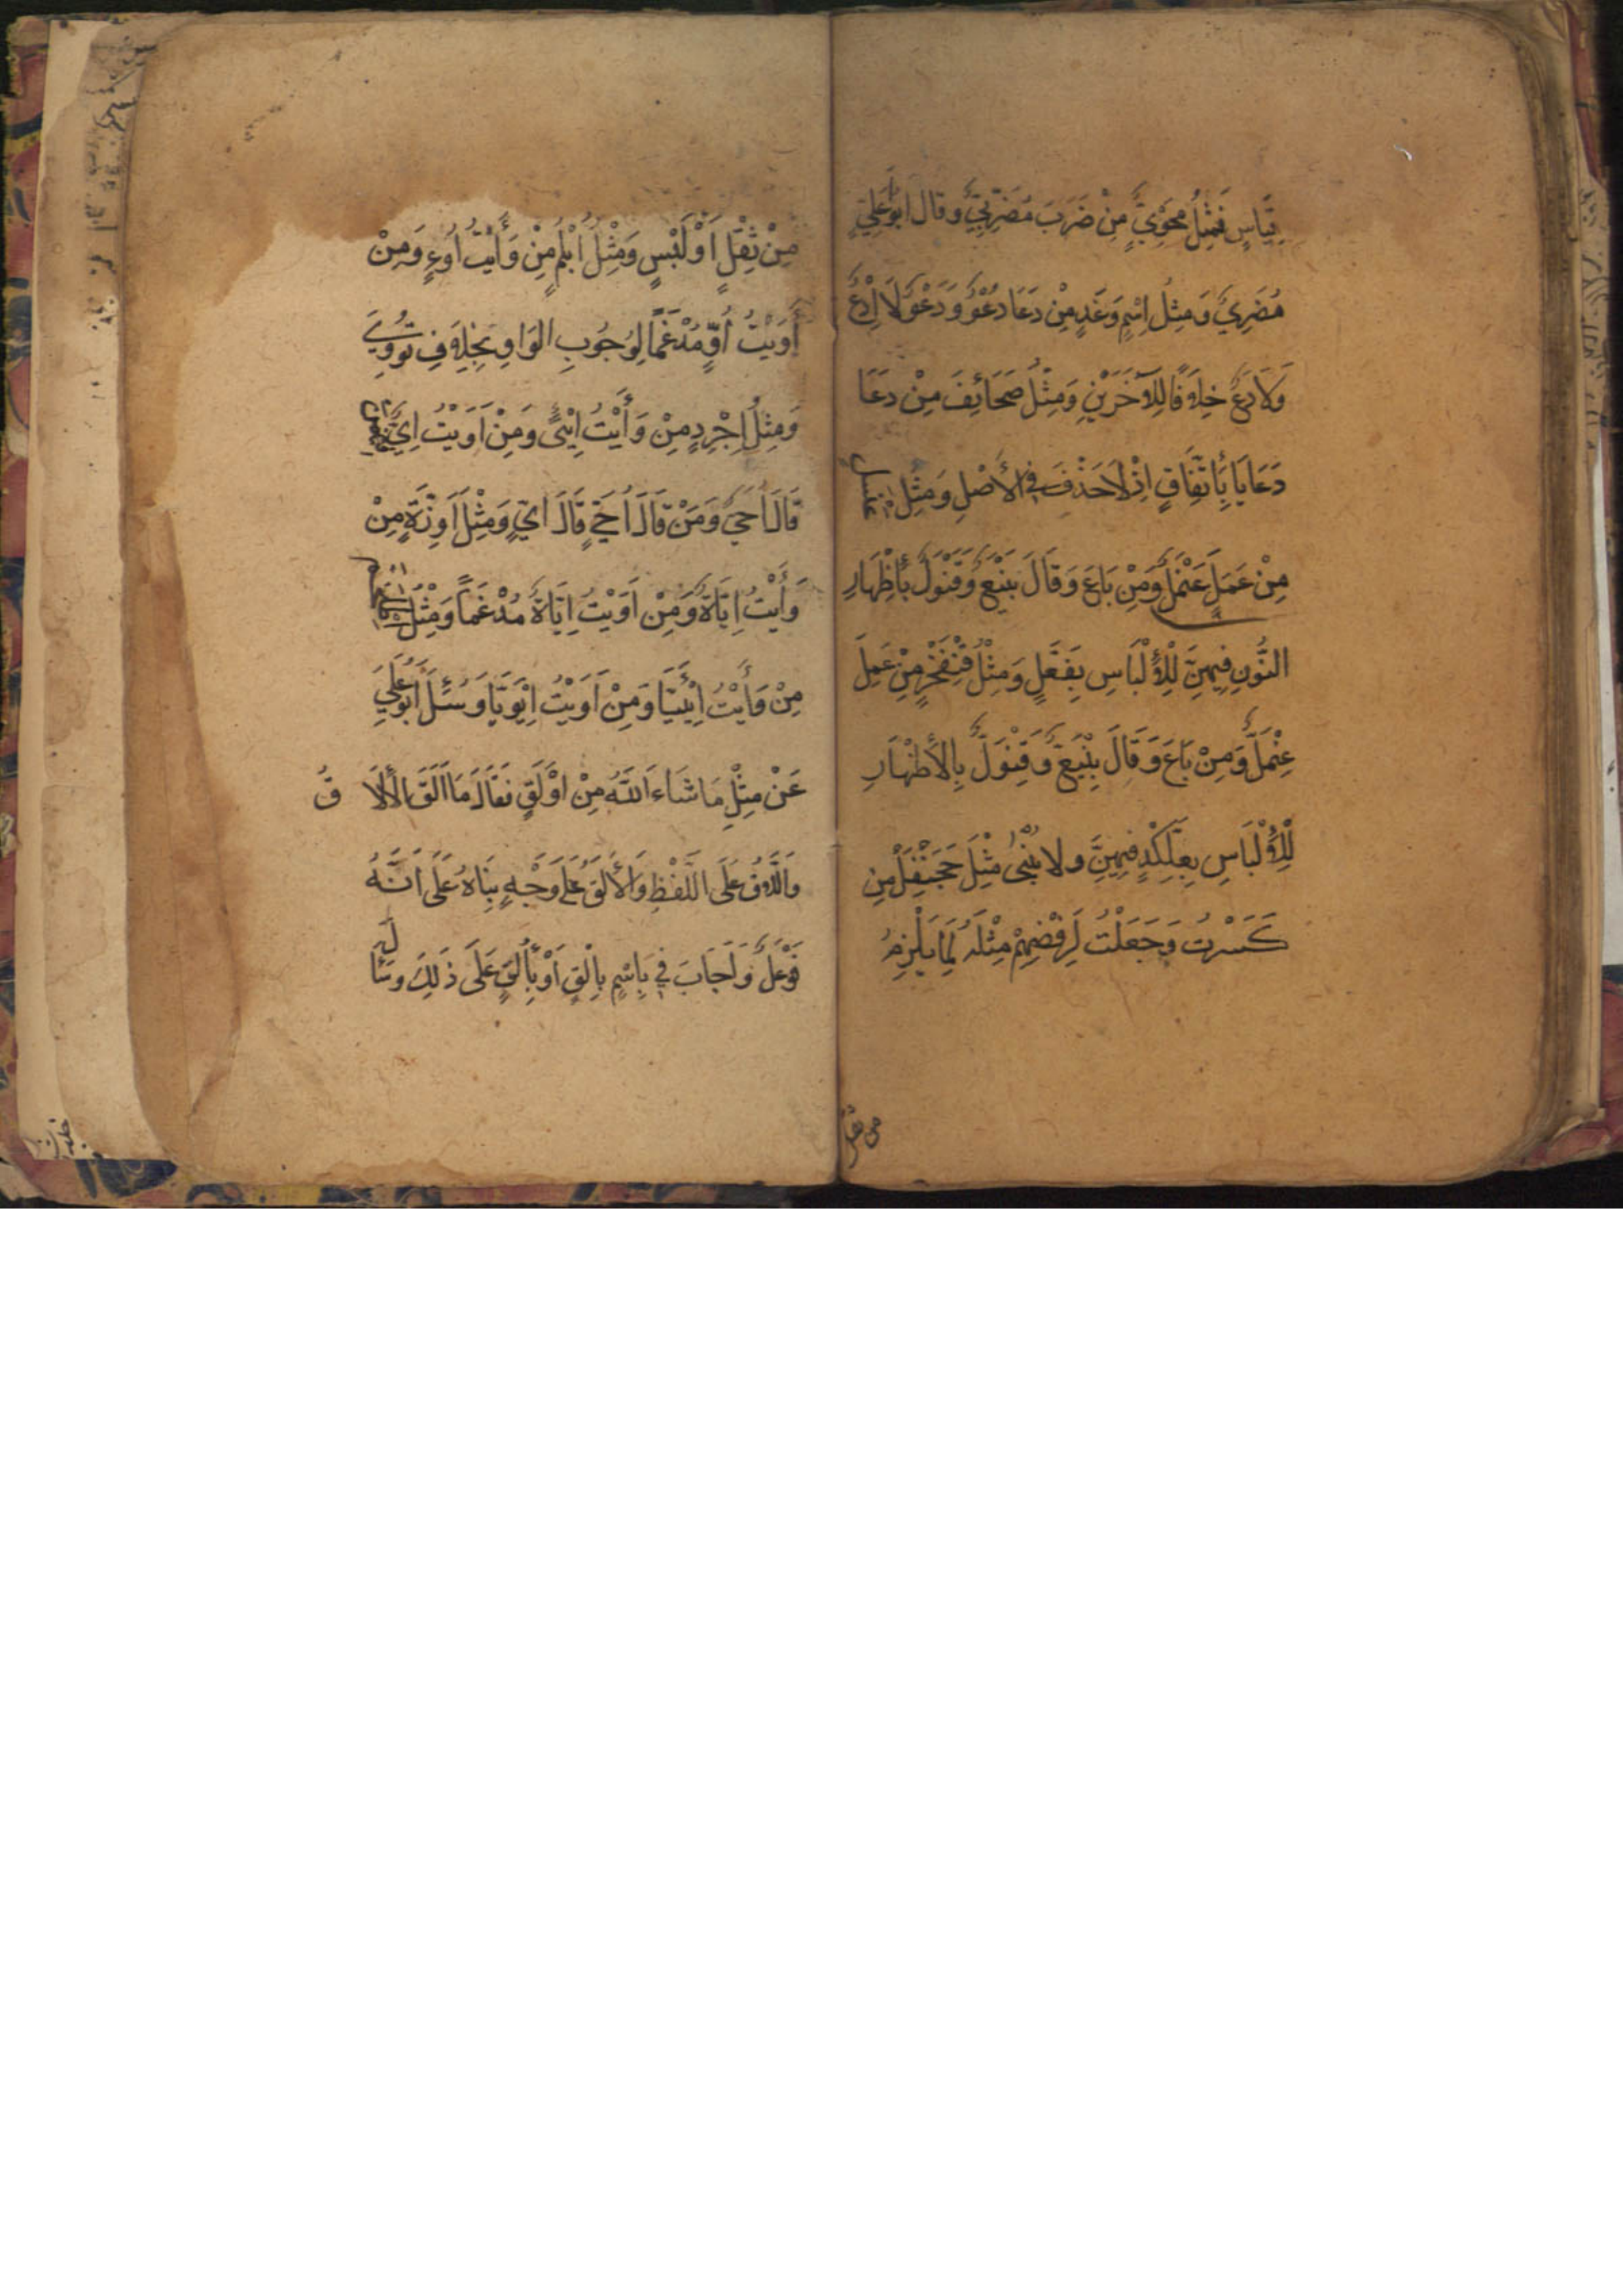 قِيَاسٍ فَمِثْلُ مُحَوِيٍّ مِنْ ضَرَبَ مُضَرِبِيٌّ وَقَالَ اَبُو عَلِيٍّ
مُضَرِيٌّ وَمِثْلُ اِسْمٍ وَغَدٍ مِنْ دَعَا دُعْوٌ وَدَعْوٌ لَا اِدْعٌ
وَلَا دَعٌ خِلَافًا لِلْآخَرَيْنِ وَمِثْلُ صَحَائِفَ مِنْ دَعَا
دَعَايَا بِأِتِّفَاقٍ اِذْ لَا حَذْفَ فِي الْأَصْلِ وَمِثْلُ عَنْسَلٍ
مِنْ عَمِلَ عَنْمَلٌ وَمِنْ بَاعَ وَقَالَ بَنْيَعٌ وَقَنْوَلٌ بِأِظْهَارِ
النُّونِ فِيهِنَّ لِلْأِلْبَاسِ بِفَعَّلٍ وَمِثْلُ قِنْفَخْرٍ مِنْ عَمِلَ
عِنْمَلٌّ وَمِنْ بَاعَ وَقَالَ بِنْيَعٌّ وَقِنْوَلٌّ بِالْأِظْهَارِ
لِلْأِلْبَاسِ بِعِلَّكْدٍ فِيهِنَّ وَلَا يُبْنٰى مِثْلَ جَحَنْفَلٍ مِنْ
كَسَرْتُ وَجَعَلْتُ لِرَفْضِهِمْ مِثْلَهُ لِمَا يَلْزَمُ
من ثقل
مِنْ ثِقَلٍ اَوْ لَبْسٍ وَمِثْلُ اُبْلُمٍ مِنْ وَأَيْتُ اُوءٍ وَمِنْ
أَوَيْتُ اُوٍّ مُدْغَمًا لِوُجُوبِ الْوَاوِ بِخِلَافِ تُووِيَ
وَمِثْلُ اِجْرِدٍ مِنْ وَأَيْتُ اِيْئٍ وَمِنْ اَوَيْتُ اِيٌّ فِيمَنْ
قَالَ اُحَيٌّ وَمَنْ قَالَ اُحَيٍّ قَالَ اِيٍّ وَمِثْلُ اِوَزَّةٍ مِنْ
وَأَيْتُ اِيَّاةٌ وَمِنْ اَوَيْتُ اِيَّاةٌ مُدْغَمًا وَمِثْلُ
مِنْ وَأَيْتُ اِيْئَيَّا وَمِنْ اَوَيْتُ اِيْوَيَّا وَسُئِلَ اَبُو عَلِيٍّ
عَنْ مِثْلِ مَا شَاءَ اللّٰهُ مِنْ اَوْلَقٍ فَقَالَ مَا اَلِقَ الْأَلَاقُ
وَاللَّاقُ عَلَى اللَّفْظِ وَالْأَلَقُ عَلَى وَجْهٍ بِنَاهُ عَلَى اَنَّهُ
فَوْعَلٌ وَاَجَابَ فِي بِاسْمٍ بِالْقٍ اَوْ بِأُلْقٍ عَلَى ذٰلِكَ وَسَأَلَ